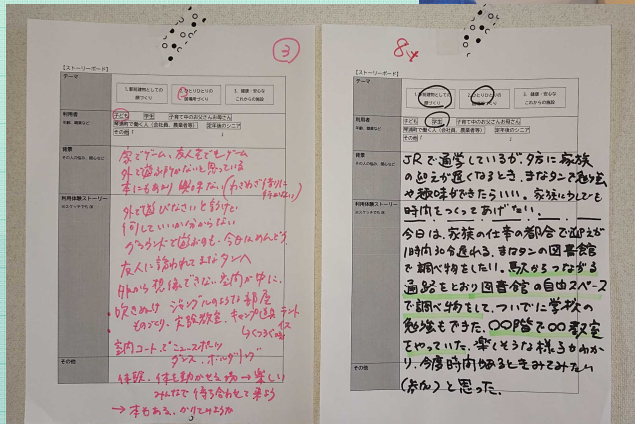 ③
【ストーリーボード】
テーマ
1. 駅前建物としての
顔づくり
2. ひとりひとりの
居場所づくり
3. 健康・安心な
これからの施設
利用者
年齢、職業など
子ども
学生
子育て中のお父さんお母さん
琴浦町で働く人（会社員、農業者等）
定年後のシニア
その他（ ）
背景
その人の悩み、関心など
家でゲーム、友人宅でもゲーム
外で遊ぶ所がないと思っている
本にもあまり興味ない（わざわざ借りに
行かない）
利用体験ストーリー
※スケッチでも可
外で遊びなさいと言うけど
何していいか分からない
グラウンドで遊ぶのも、今日はめんどう
友人に誘われてまなタンへ
外から想像できない空間が中に、
吹きぬけ ジャングルのような部屋
ものづくり、実験教室、キャンプ道具 テント
イス
室内コートで ニュースポーツ
ダンス、ボルダリング
その他
体験、体を動かせる場→楽しい
みんなで待ち合わせて来よう
→本もある、かりてみようか
8
【ストーリーボード】
テーマ
1. 駅前建物としての
顔づくり
2. ひとりひとりの
居場所づくり
3. 健康・安心な
これからの施設
利用者
年齢、職業など
子ども
学生
子育て中のお父さんお母さん
琴浦町で働く人（会社員、農業者等）
定年後のシニア
その他（ ）
背景
その人の悩み、関心など
JRで通学しているが、夕方に家族
の迎えが遅くなるとき、まなタンで勉強
や趣味ができたらいい。家族に少しでも
時間をつくってあげたい。
利用体験ストーリー
※スケッチでも可
今日は、家族の仕事の都合で迎えが
1時間30分遅れる。まなタンの図書館
で調べ物をしたい。駅からつながる
通路をとおり図書館の自由スペース
で調べ物をして、ついでに学校の
勉強もできた。〇〇階で〇〇教室
をやっていた。楽しそうな様子がわか
その他
り、今度時間があるときみてみたい
（参加）と思った。